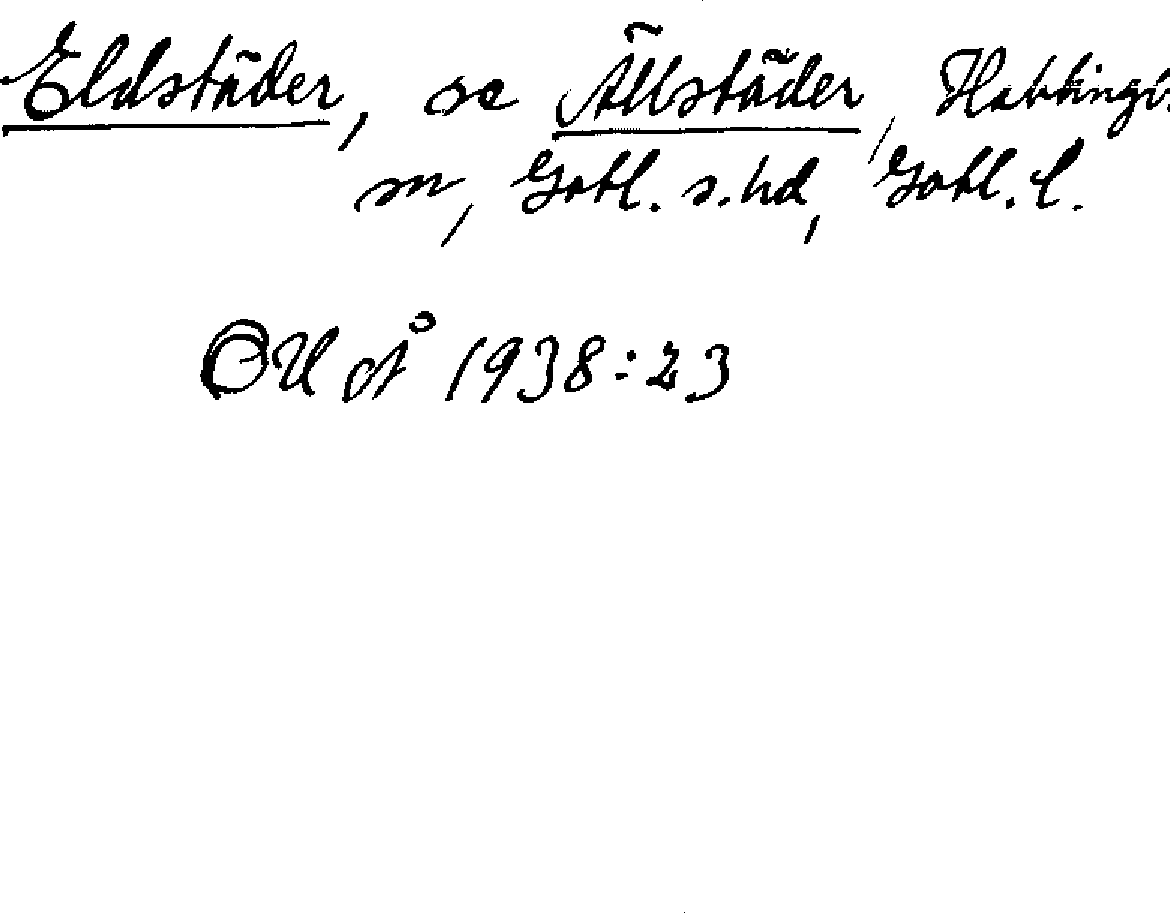 Eldstäder, se Ällstäder, Hablingb
sn, Gotl. s. hd, Gotl. l.
OUÅ 1938:23